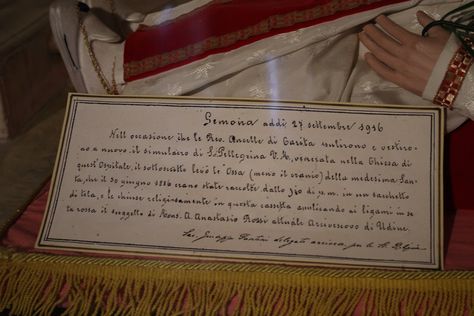 Gemona addì 27 settembre 1916
Nell'occasione, che le Rev. Ancelle di Carità vestirono
a nuovo il simulacro di S. Pellegrina V. M., venerata nella Chiesa di
quest'Ospitale, il sottoscritto levò le Ossa (meno il cranio) della medesima San-
ta, che il 30 giugno 1886 erano state raccolte dallo in un sacchetto
di tela, e le chiuse religiosamente in questa cassetta in se-
ta rossa il suggello di Mons. A. Anastasio Rossi attuale Arcivescovo di Udine.
Sac. Giuseppe delegato